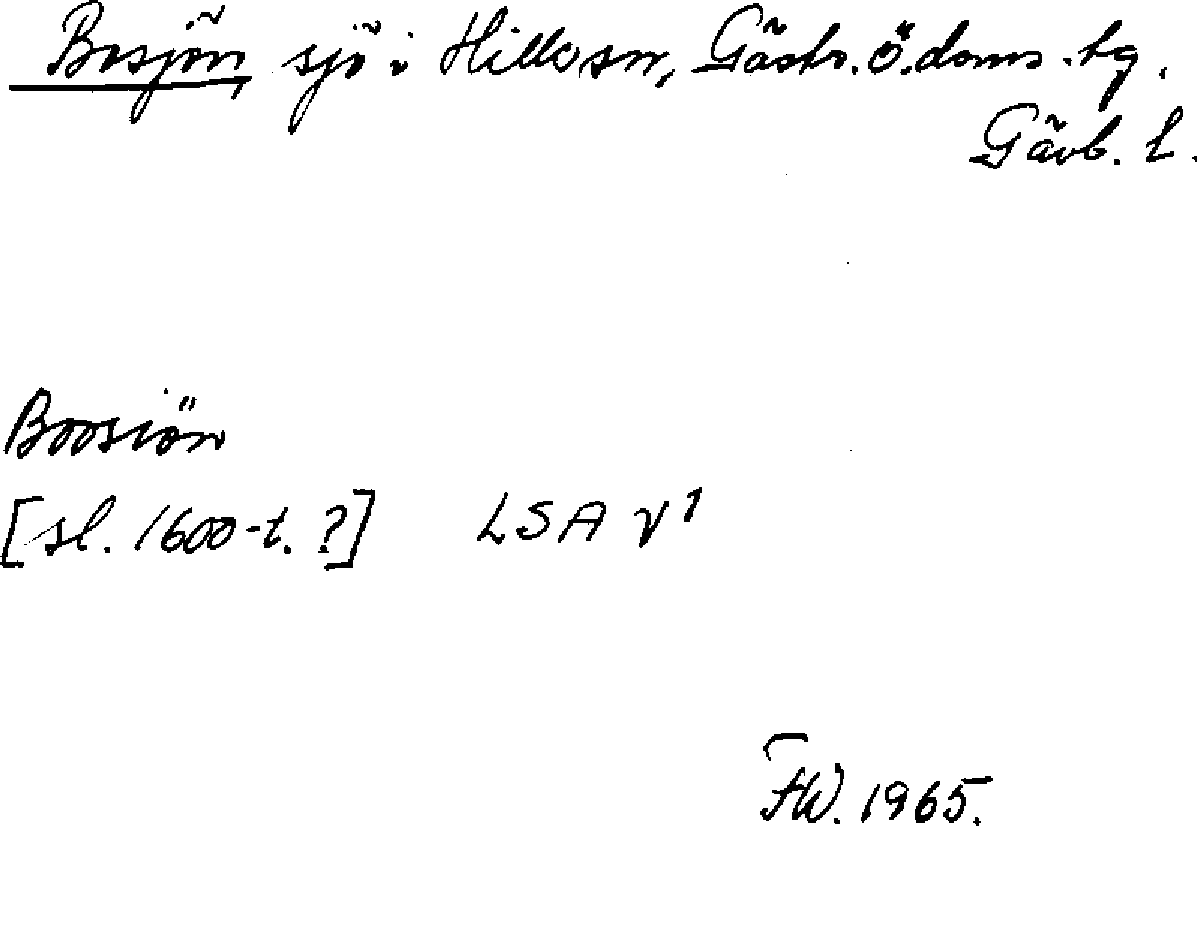 Bosjön, sjö i Hille sn, Gästr. ö. doms.-tg.
Gävb. l.
Boosiön
[sl. 1600-t. ?] LSA V¹
FW. 1965.